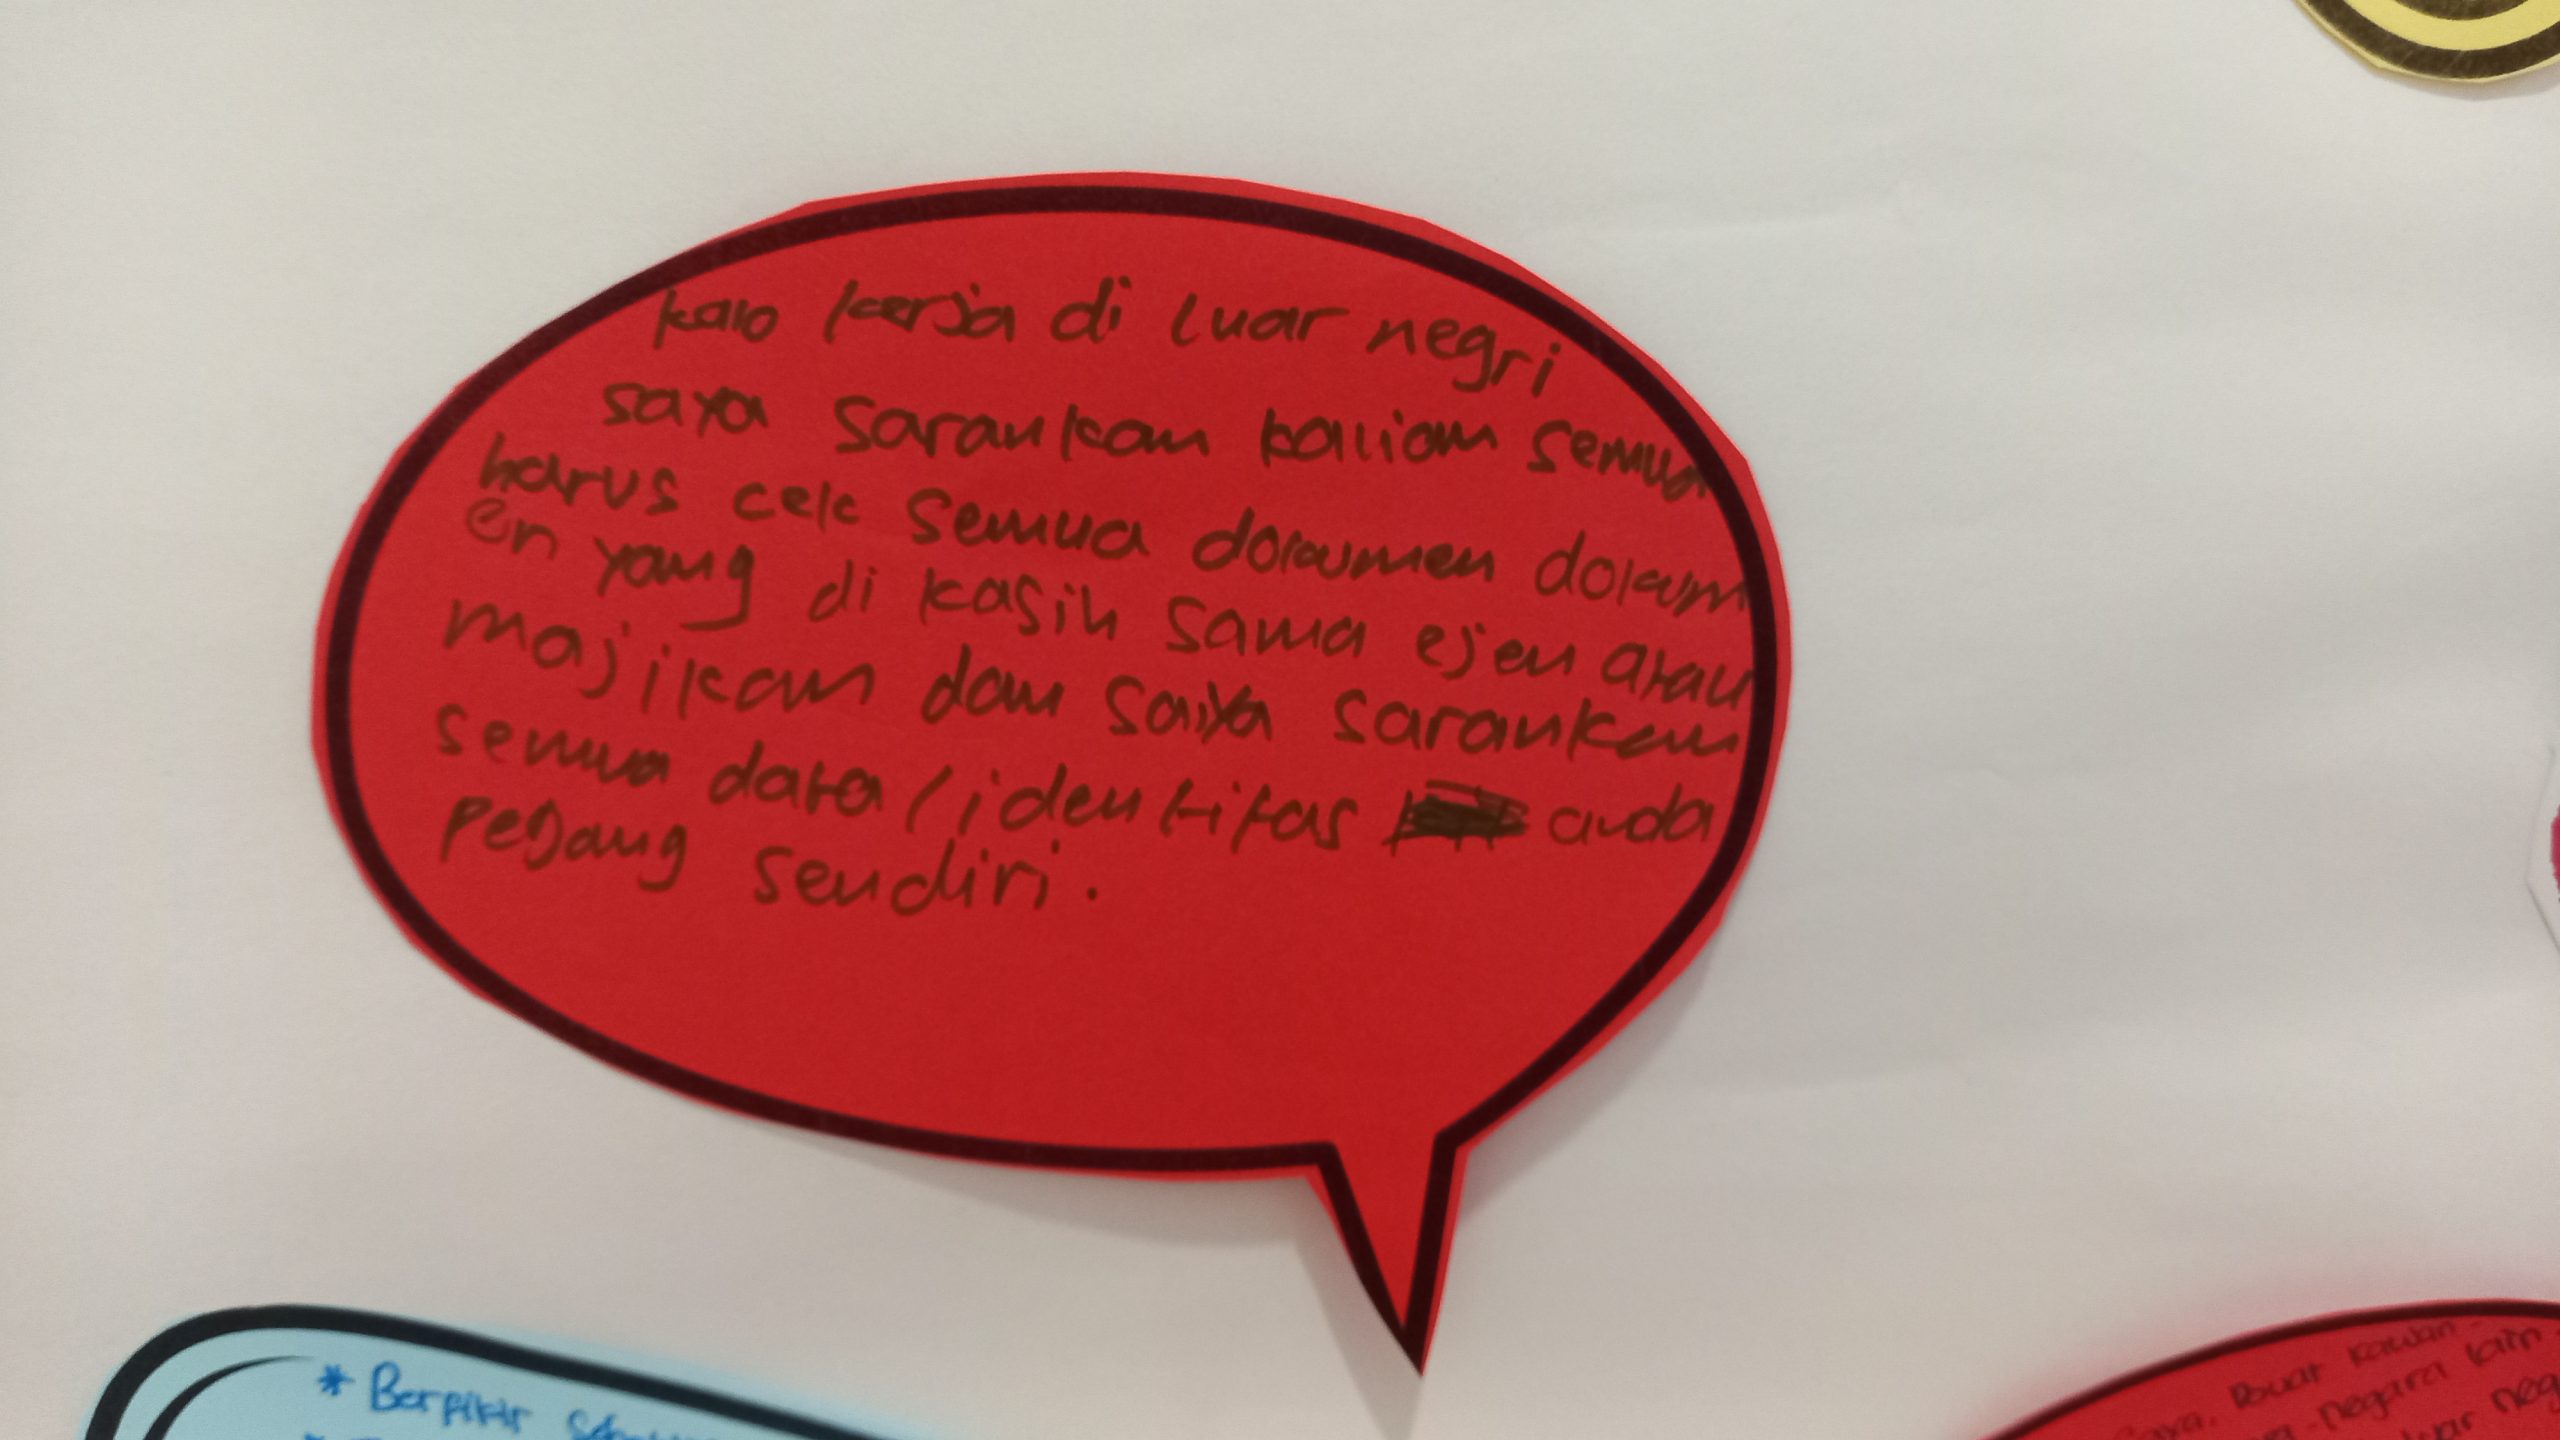 kalo kerja di luar negri
saya sarankan kalian semua
harus cek semua dokumen dokum
en yang di kasih sama ejen atau
majikan dan saya sarankan
semua data / identitas anda
pegang sendiri.
* Berpikir
saya. Buat kawan-
-negara lain
luar neg